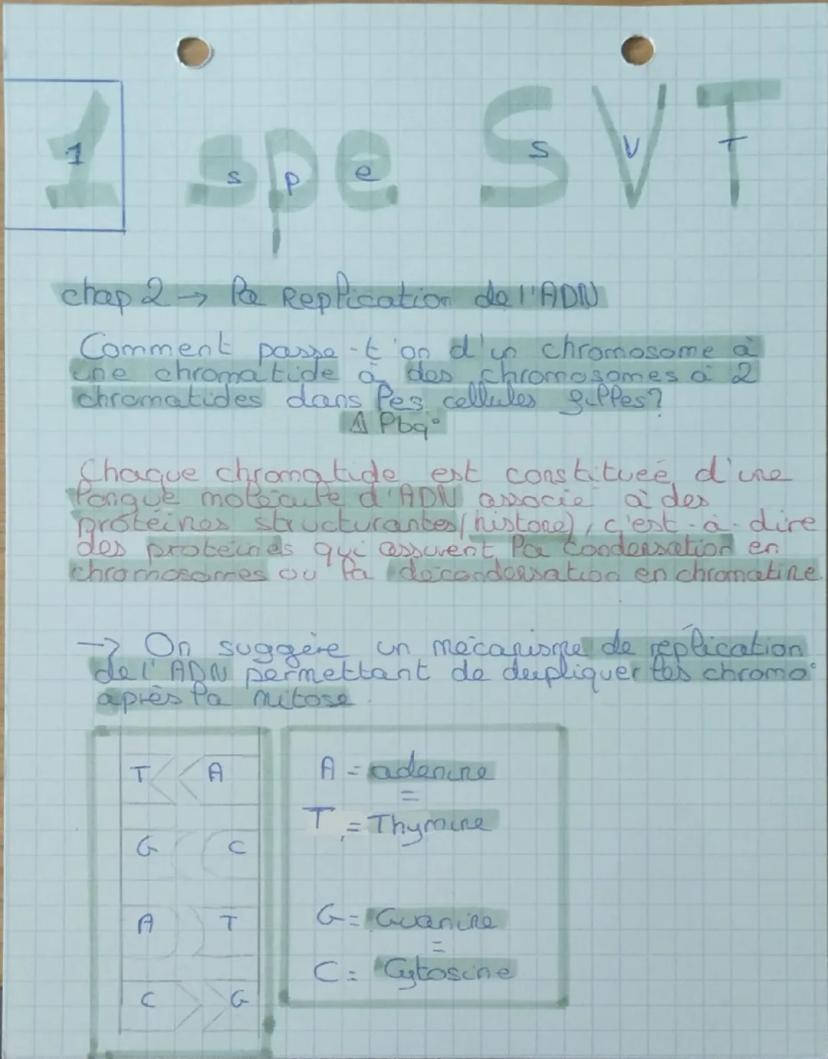 1 spe SVT
chap 2 → la Replication de l'ADN
Comment passe-t'on d'un chromosome à
une chromatide à des chromosomes à 2
chromatides dans les cellules filles?
Δ Pbq°
Chaque chromatide est constituée d'une
longue molécule d'ADN associé à des
protéines structurantes (histone), c'est-à-dire
des proteines qui assurent la condensation en
chromosomes ou la décondensation en chromatine.
→ On suggère un mécanisme de réplication
de l'ADN permettant de dupliquer les chromo°
après la mitose.
T A
G C
A T
C G
A = adenine
=
T = Thymine
G = Guanine
=
C = Cytosine